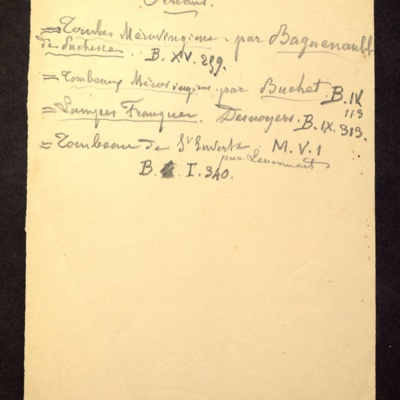 Orléans.
= Tombes Mérovingiennes par Baguenault
de Puchesse. B. XV. 259.
= Tombeaux Mérovingiens par Buchet. B. IV
113
= Lampes Franques Desnoyers. B. IX. 313.
= Tombeau de St Euverte M. V. 1
par
B. I. 340.